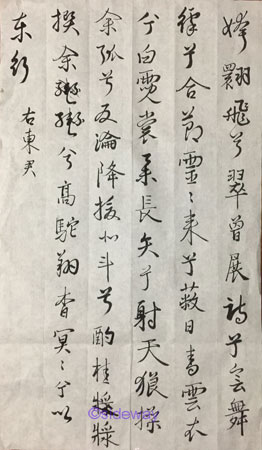 姱翾飛兮翠曾展詩兮會舞
律兮合節靈〻來兮蔽日青雲衣
兮白霓裳舉長矢兮射天狼操
余弧兮反淪降援北斗兮酌桂漿
撰余轡兮高駝翔杳冥〻兮以
东行
右東君
©sideway